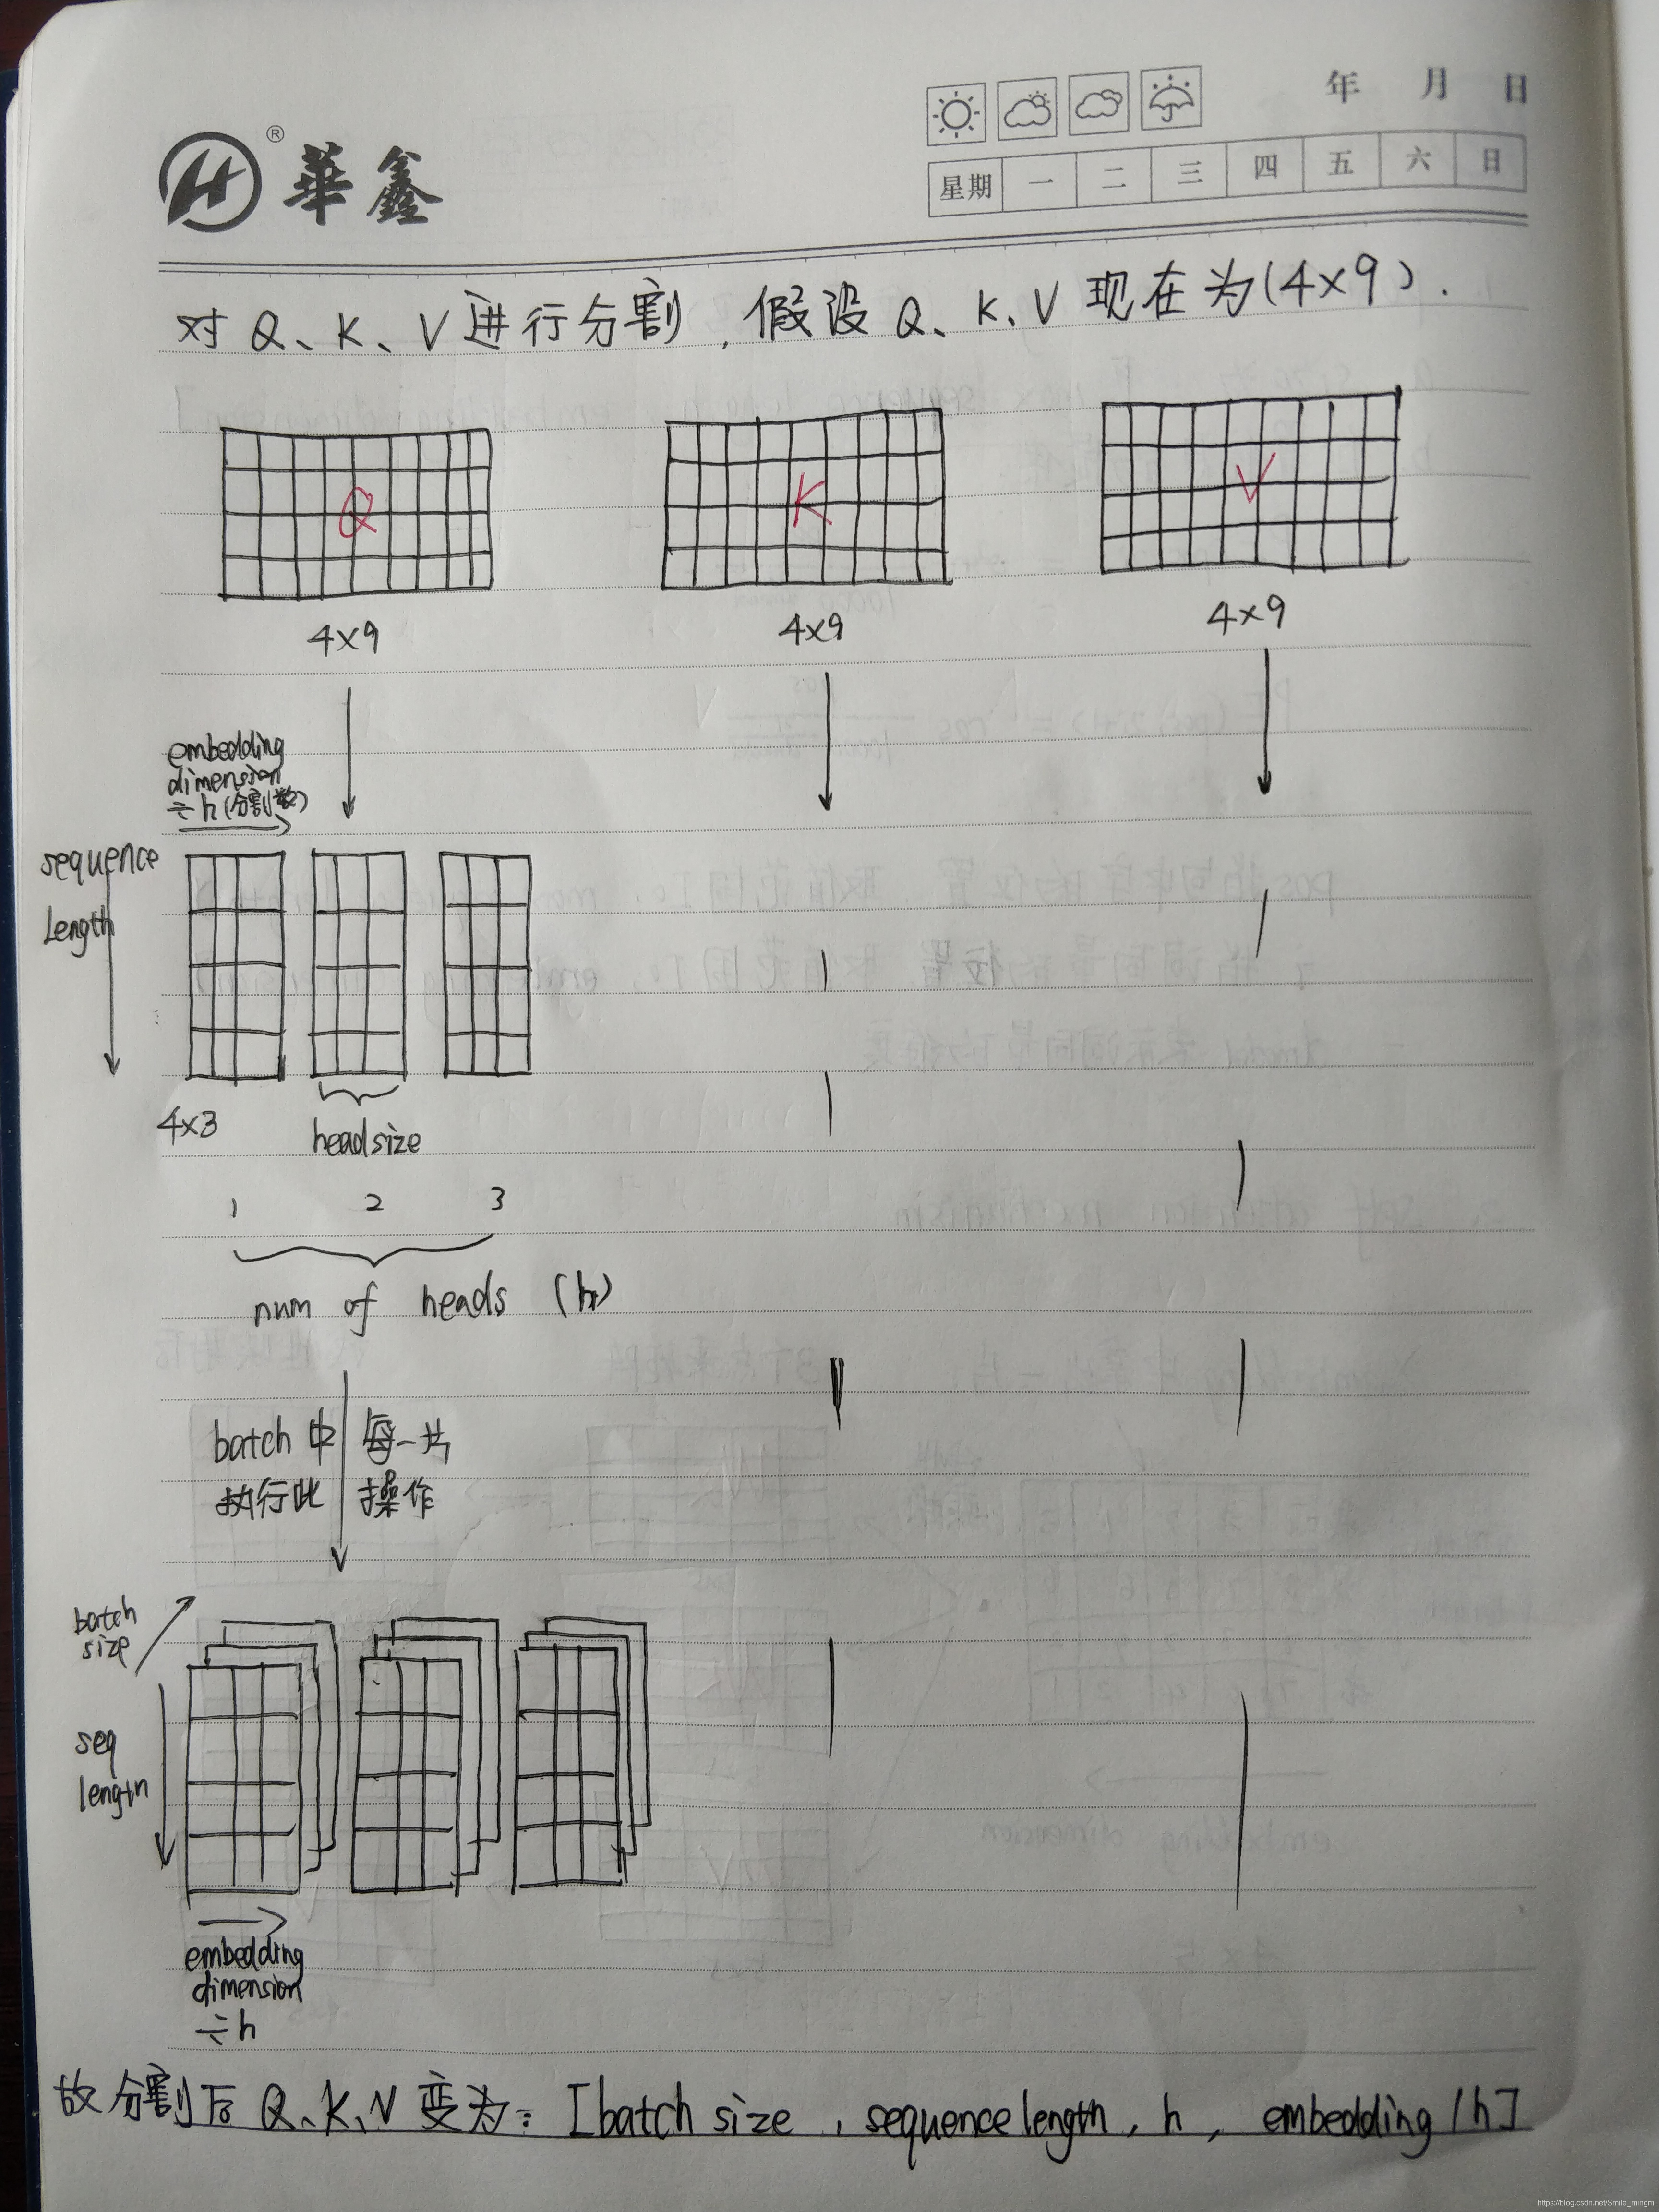 華鑫
®
年 月 日
星期 一 二 三 四 五 六 日
对 Q、K、V 进行分割，假设 Q、K、V 现在为(4×9).
Q
K
V
4×9
4×9
4×9
embedding
dimension
÷h(分割数)
sequence
Length
4×3
headsize
1 2 3
num of heads (h)
batch中每一片
执行此操作
batch
size
seq
length
embedding
dimension
÷h
故分割后 Q、K、V 变为: [batch size , sequence length , h , embedding/h]
https://blog.csdn.net/Smile_mingm